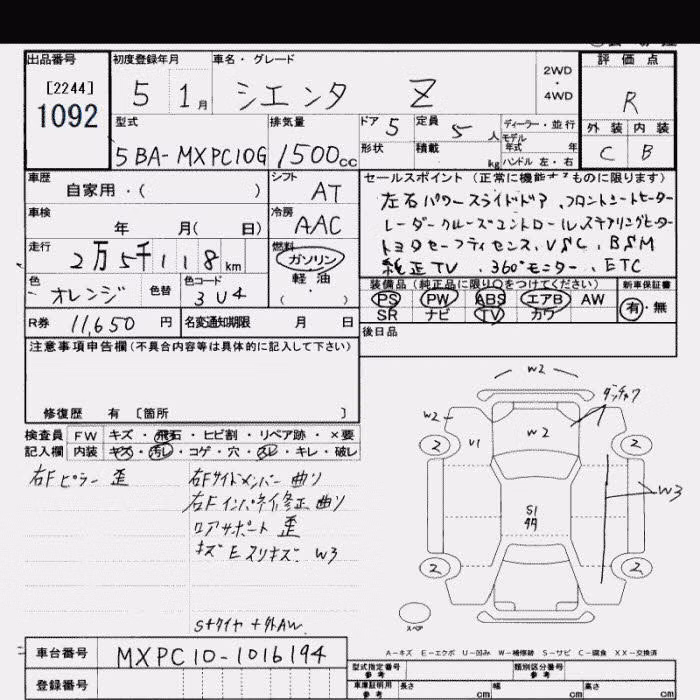 出品番号 初度登録年月 車名・グレード 評価点
[2244]
1092
5 1月 シエンタ Z 2WD・4WD R
型式 排気量 ドア 5 定員 5人 ディーラー・並行 外装 内装
形状 積載 kg モデル年式 年 ハンドル 左・右 C B
5BA-MXPC10G 1500cc
車歴 シフト セールスポイント(正常に機能 ものに限ります)
自家用・( ) AT 左右パワースライドドア、フロントシートヒーター
車検 冷房 レーダークルーズコントロール、ステアリングヒーター
年 月( 日) AAC トヨタセーフティセンス、VSC、BSM
走行 燃料 純正TV、360°モニター、ETC
2万5千118km ガソリン 装備品(純正品に限り○をつけてください) 新車保証書
色 色替 色コード 軽油 PS PW ABS エアB AW 有・無
オレンジ 3U4 ( ・ ) SR ナビ TV カワ
R券 11,650円 名変通知期限 月 日 後日品
注意事項申告欄(不具合内容等は具体的に記入して下さい)
修復歴 有 [箇所 ]
検査員 FW キズ・飛石・ヒビ割・リペア跡・×要
記入欄 内装 キズ・汚レ・コゲ・穴・スレ・キレ・破レ
右Fピラー 歪 右Fサイドメンバー曲り
右Fインパネイ修正曲り
ロアサポート 歪
キズ E スリキズ W3
S+タイヤ+外AW
W2
W2
W2
U1
S1
W3
2
2
2
2
スペア
A-キズ E-エクボ U-凹み W-補修跡 S-サビ C-腐食 XX-交換済
車台番号 MXPC10-1016194 型式指定番号 参考 類別区分番号 参考
登録番号 車庫証明用 参考 長さ cm 幅 cm 高さ cm